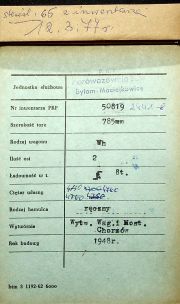 skreśl. 65 z inwentarza
12.3.77r.
Jednostka służbowa
Parowozownia
Bytom-Maciejkowice
Nr inwentarza PKP 50819
Szerokość toru 785mm
Rodzaj wagonu Wh
Ilość osi 2
Ładowność w t. 8t.
Ciężar własny 4700
Rodzaj hamulca ręczny
Wytwórnia Wytw. Wag.i Most.
Chorzów
Rok budowy 1948r.